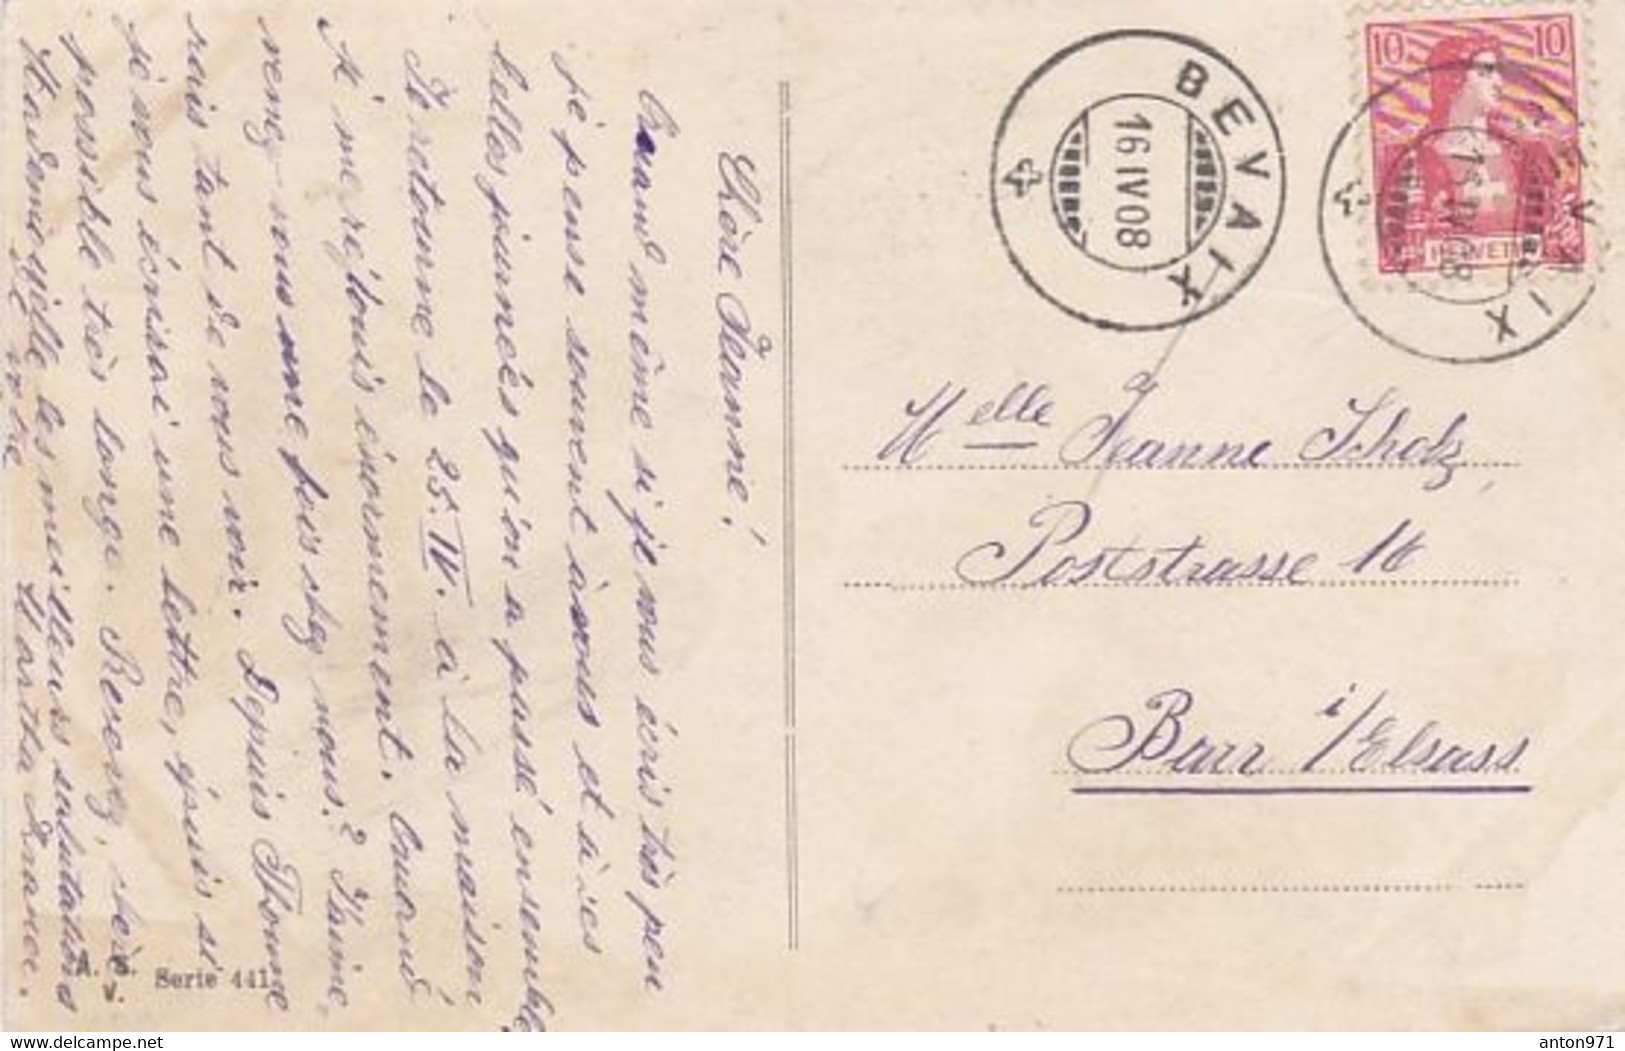 Chère Jeanne!
Quand même si je vous écris très peu
je pense souvent à vous et à ces
belles journées qu'on a passé ensemble
Je retourne le 25. IV. à la maison
et me réjouis énormement. Quand
venez-vous une fois chez nous?
rais tant de vous voir. Depuis
je vous écrirai une lettre, si
possible très longue. Recevez, chère
Mademoiselle les meilleurs salutations
votre Martha
A. S. V. Serie 441
BEVAIX
16 IV 08
BEVAIX
10 10
HELVETIA
Melle Jeanne Scholz
Poststrasse 16
Barr i/Elsass
delcampe.net
anton971